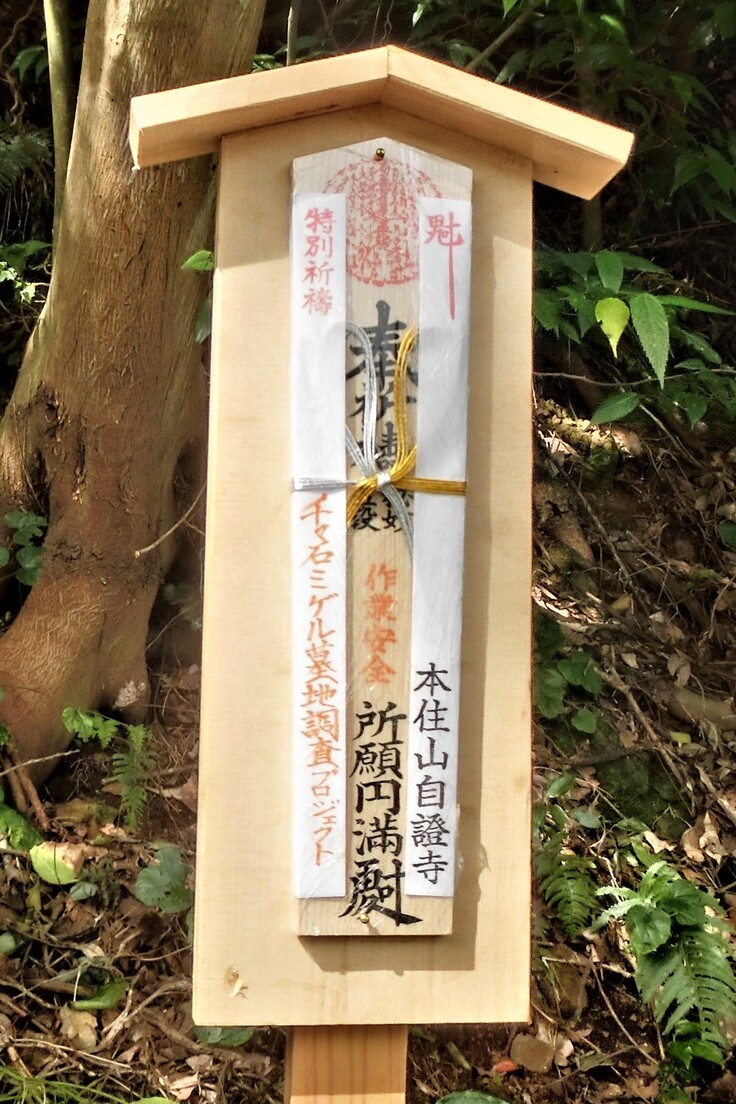 魁
本住山自證寺
奉
作業安全
所願円満
特別祈禱
千々石ミゲル墓地調査プロジェクト